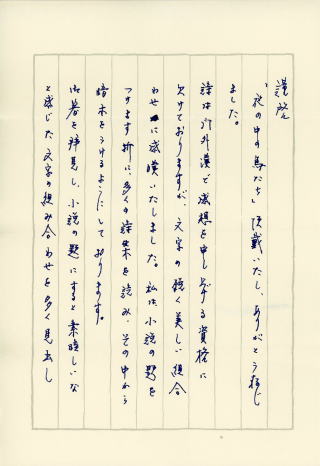 謹啓
「夜の中の鳥たち」頂戴いたし、ありがとう存じ
ました。
詩は門外漢で感想を申し上げる資格に
欠けておりますが、文字の強く美しい組合
わせに感嘆いたしました。私は小説の題を
つけます折に、多くの詩集を読み、その中から
暗示をうけるようにしております。
御著を拝見し、小説の題にすると素晴しいな
と感じた文字の組み合わせを多く見出し